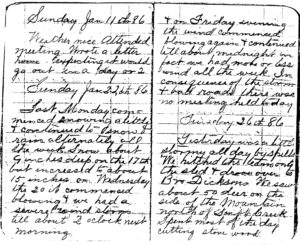 Sunday Jan 11th 86
Weather nice Attended
meeting Wrote a letter
home expecting it would
go out in a day or 2
Sunday Jan 22th 86
Last Monday com-
menced snowing a little
& continued to snow &
rain alternately till
the with snow about
9 inches deep on the 17th
but increased to about
15 inches on Wednesday
the 20 it commenced
blowing & we had a
severe wind storm
till about 2 oclock next
morning
& on Friday evening
the wind commenced
blowing again & continued
till about midnight in
fact we had more or less
wind all the week. In
consequence of the storm
& bad roads there was
no meeting held today
Tuesday 26th 86
Yesterday was a little
stormy and day by spells
We hitched the team onto
the sled & drove over to
Bro Dicksons We saw
about 50 deer on the
side of the Mountain
north of Creek
spent most of the day
cutting stove wood